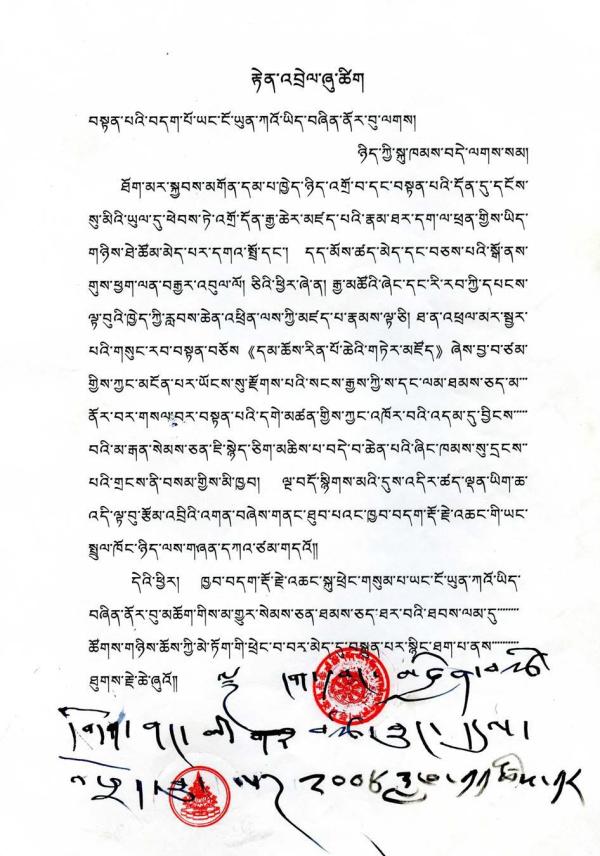 རྟེན་འབྲེལ་ཞུ་ཚིག
བསྟན་པའི་བདག་པོ་ཡང་ངོ་ཡུན་ཀའོ་ཡིད་བཞིན་ནོར་བུ་ལགས།
ཉིད་ཀྱི་སྐུ་ཁམས་བདེ་ལགས་སམ།
ཐོག་མར་སྐྱབས་མགོན་དམ་པ་ཁྱེད་ཉིད་འགྲོ་བ་དང་བསྟན་པའི་དོན་དུ་དངོས་
སུ་མིའི་ཡུལ་དུ་ཕེབས་ཏེ་འགྲོ་དོན་རྒྱ་ཆེར་མཛད་པའི་རྣམ་ཐར་དག་ལ་ཕྲན་གྱིས་ཡིད་
གཉིས་ཐེ་ཚོམ་མེད་པར་དགའ་སྤྲོ་དང་། དད་མོས་ཚད་མེད་དང་བཅས་པའི་སྒོ་ནས་
གུས་ཕྱག་ལན་བརྒྱར་འབུལ་ལོ། ཅིའི་ཕྱིར་ཞེ་ན། རྒྱ་མཚོའི་ཞེང་དང་རི་རབ་ཀྱི་དཔངས་
ལྟ་བུའི་ཁྱེད་ཀྱི་རླབས་ཆེན་འཕྲིན་ལས་ཀྱི་མཛད་པ་རྣམས་ལྟ་ཅི། ཐ་ན་འཕྲལ་མར་སྦྱར་
པའི་གསུང་རབ་བསྟན་བཅོས《དམ་ཆོས་རིན་པོ་ཆེའི་གཏེར་མཛོད》ཞེས་བྱ་བ་ཙམ་
གྱིས་ཀྱང་མངོན་པར་ཡོངས་སུ་རྫོགས་པའི་སངས་རྒྱས་ཀྱི་ས་དང་ལམ་ཐམས་ཅད་མ་
ནོར་བར་གསལ་བར་བསྟན་པའི་དགེ་མཚན་གྱིས་ཀྱང་འཁོར་བའི་འདམ་དུ་བྱིངས་
བའི་མ་རྒན་སེམས་ཅན་ཇི་སྙེད་ཅིག་མཆིས་པ་བདེ་བ་ཆེན་པའི་ཞིང་ཁམས་སུ་དྲངས་
པའི་གྲངས་ནི་བསམ་གྱིས་མི་ཁྱབ། ལྔ་བདོ་སྙིགས་མའི་དུས་འདིར་ཚད་ལྡན་ཡིག་ཆ་
འདི་ལྟ་བུ་རྩོམ་འབྲིའི་འགན་བཞེས་གནང་ཐུབ་པའང་ཁྱབ་བདག་རྡོ་རྗེ་འཆང་གི་ཡང་
སྤྲུལ་ཁོང་ཉིད་ལས་གཞན་དཀའ་ཙམ་གདའོ༎
དེའི་ཕྱིར། ཁྱབ་བདག་རྡོ་རྗེ་འཆང་སྐུ་ཕྲེང་གསུམ་པ་ཡང་ངོ་ཡུན་ཀའོ་ཡིད་
བཞིན་ནོར་བུ་མཆོག་གིས་མ་གྱུར་སེམས་ཅན་ཐམས་ཅད་ཐར་བའི་ཐབས་ལམ་དུ་
ཚོགས་གཉིས་ཆོས་ཀྱི་མེ་ཏོག་གི་ཕྲེང་བ་བར་མེད་དུ་བསྟན་པར་སྙིང་ཐག་པ་ནས་
ཐུགས་རྗེ་ཆེ་ཞུའོ༎